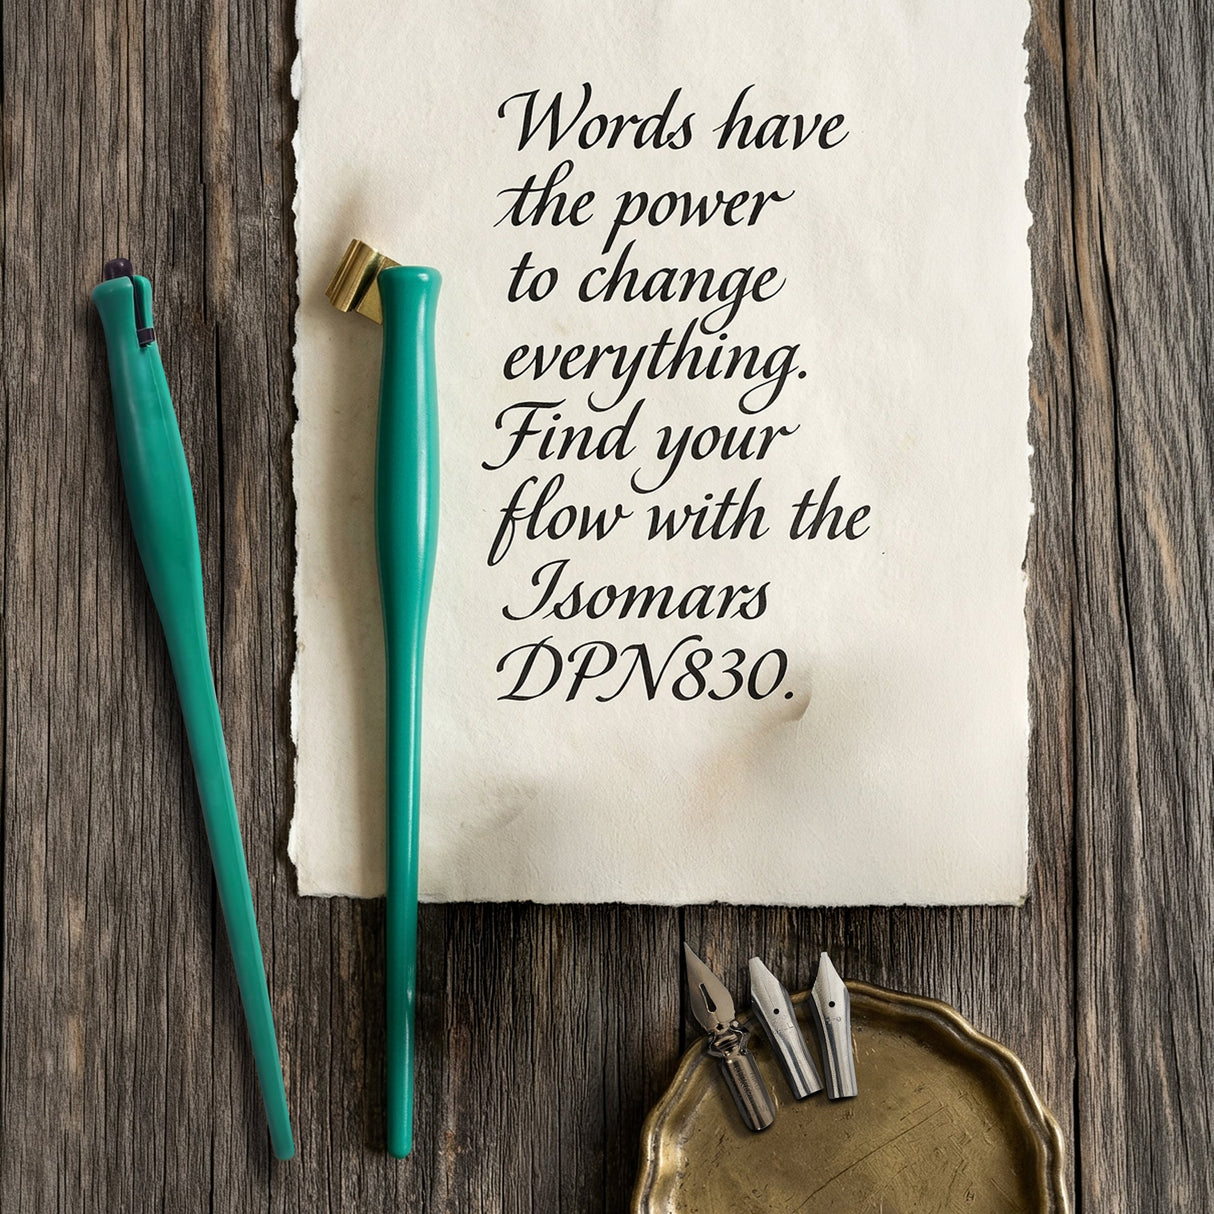 Words have
the power
to change
everything.
Find your
flow with the
Isomars
DPN830.